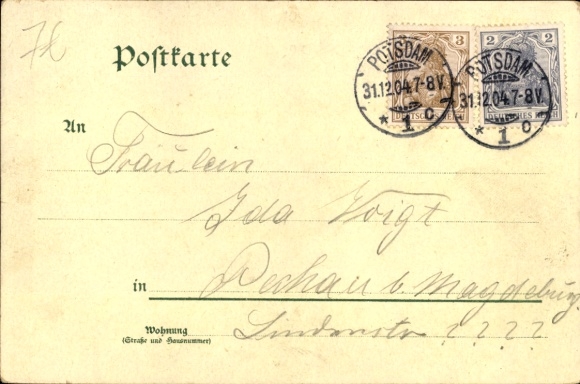 Postkarte
3 2
DEUTSCHES REICH DEUTSCHES REICH
POTSDAM POTSDAM
31.12.04.7-8V. 31.12.04.7-8V.
* 1 c * 1 c
An
Fräulein
Ida Voigt
in Pechau b. Magdeburg
Wohnung
(Straße und Hausnummer)
Lindenstr ? ? ? ?